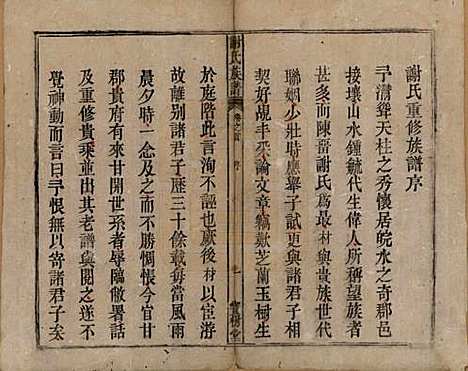 謝氏重修族譜序
予潛聳天柱之秀懷居皖水之奇郡邑
接壤山水鍾毓代生偉人所稱望族者
甚多而陳嵒謝氏爲最村與貴族世代
聯姻少壯時應舉子試更與諸君子相
契好覘丰采論文章竊歎芝蘭玉樹生
謝氏族譜
卷之首
序
一
寶樹堂
於庭階此言洵不誣也厥後村以宦游
故離別諸君子歷三十餘載每當風雨
晨夕時一念及之而不勝惆悵今官甘
郡貴府有甘開世系者舉臨敝署話
及重修貴乘並出其老譜與閱之遂不
覺神動而言曰予恨無以寄諸君子矣